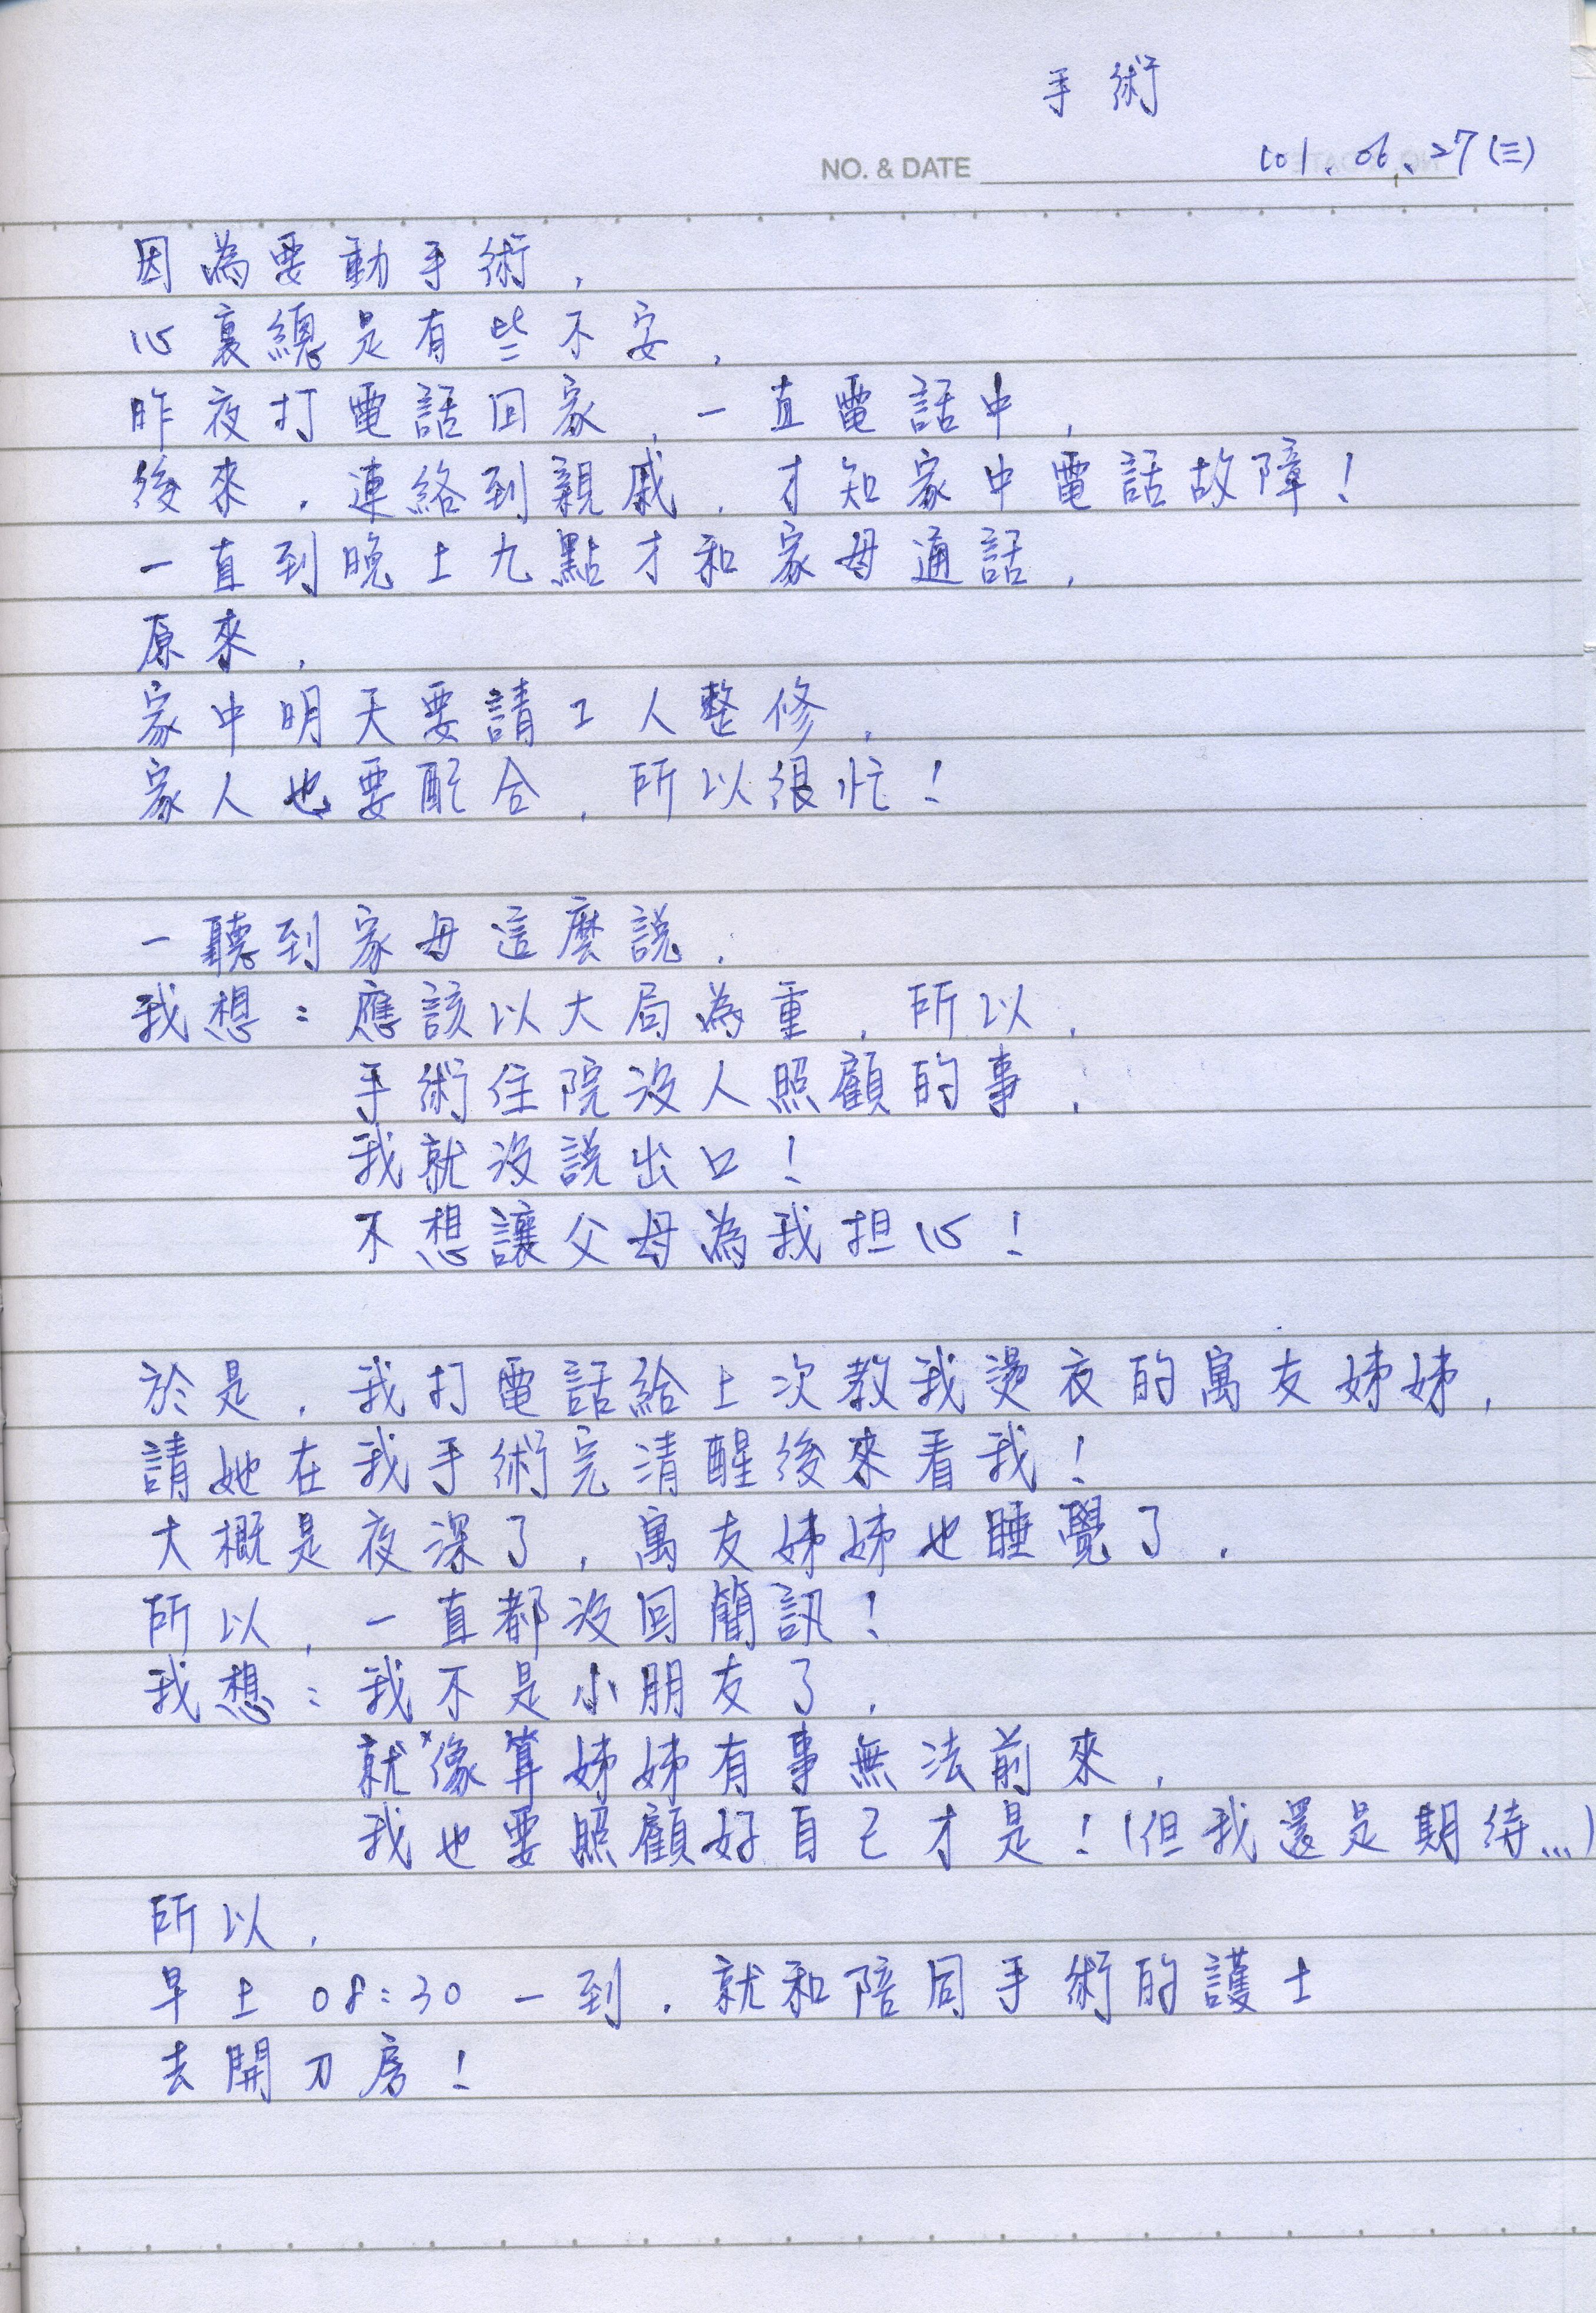 手術
NO. & DATE 101.06.27(三)
因為要動手術,
心裏總是有些不安,
昨夜打電話回家,一直電話中,
後來,連絡到親戚,才知家中電話故障!
一直到晚上九點才和家母通話,
原來,
家中明天要請工人整修,
家人也要配合,所以很忙!
一聽到家母這麼說,
我想:應該以大局為重,所以,
手術住院沒人照顧的事,
我就沒說出口!
不想讓父母為我担心!
於是,我打電話給上次教我燙衣的寓友姊姊,
請她在我手術完清醒後來看我!
大概是夜深了,寓友姊姊也睡覺了,
所以,一直都沒回簡訊!
我想:我不是小朋友了,
就像算姊姊有事無法前來,
我也要照顧好自己才是!(但我還是期待...)
所以,
早上08:30一到,就和陪同手術的護士
去開刀房!